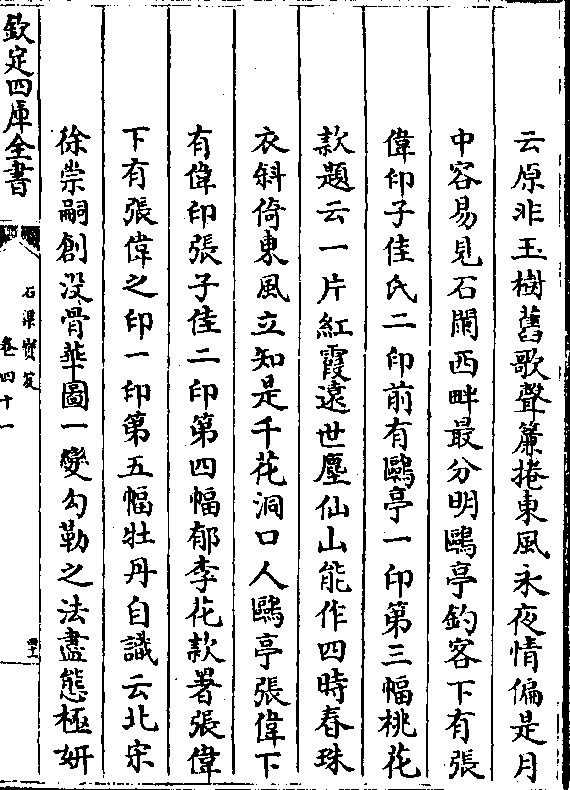 云原非玉樹舊歌聲簾捲東風永夜情偏是月
中容易見石闌西畔最分明鷗亭釣客下有張
偉印子佳氏二印前有鷗亭一印第三幅桃花
款題云一片紅霞遠世塵仙山能作四時春珠
衣斜倚東風立知是千花洞口人鷗亭張偉下
有偉印張子佳二印第四幅郁李花款署張偉
下有張偉之印一印第五幅牡丹自識云北宋
徐崇嗣創没骨華圖一變勾勒之法盡態極妍
欽定四庫全書
石渠寳笈
卷四十一